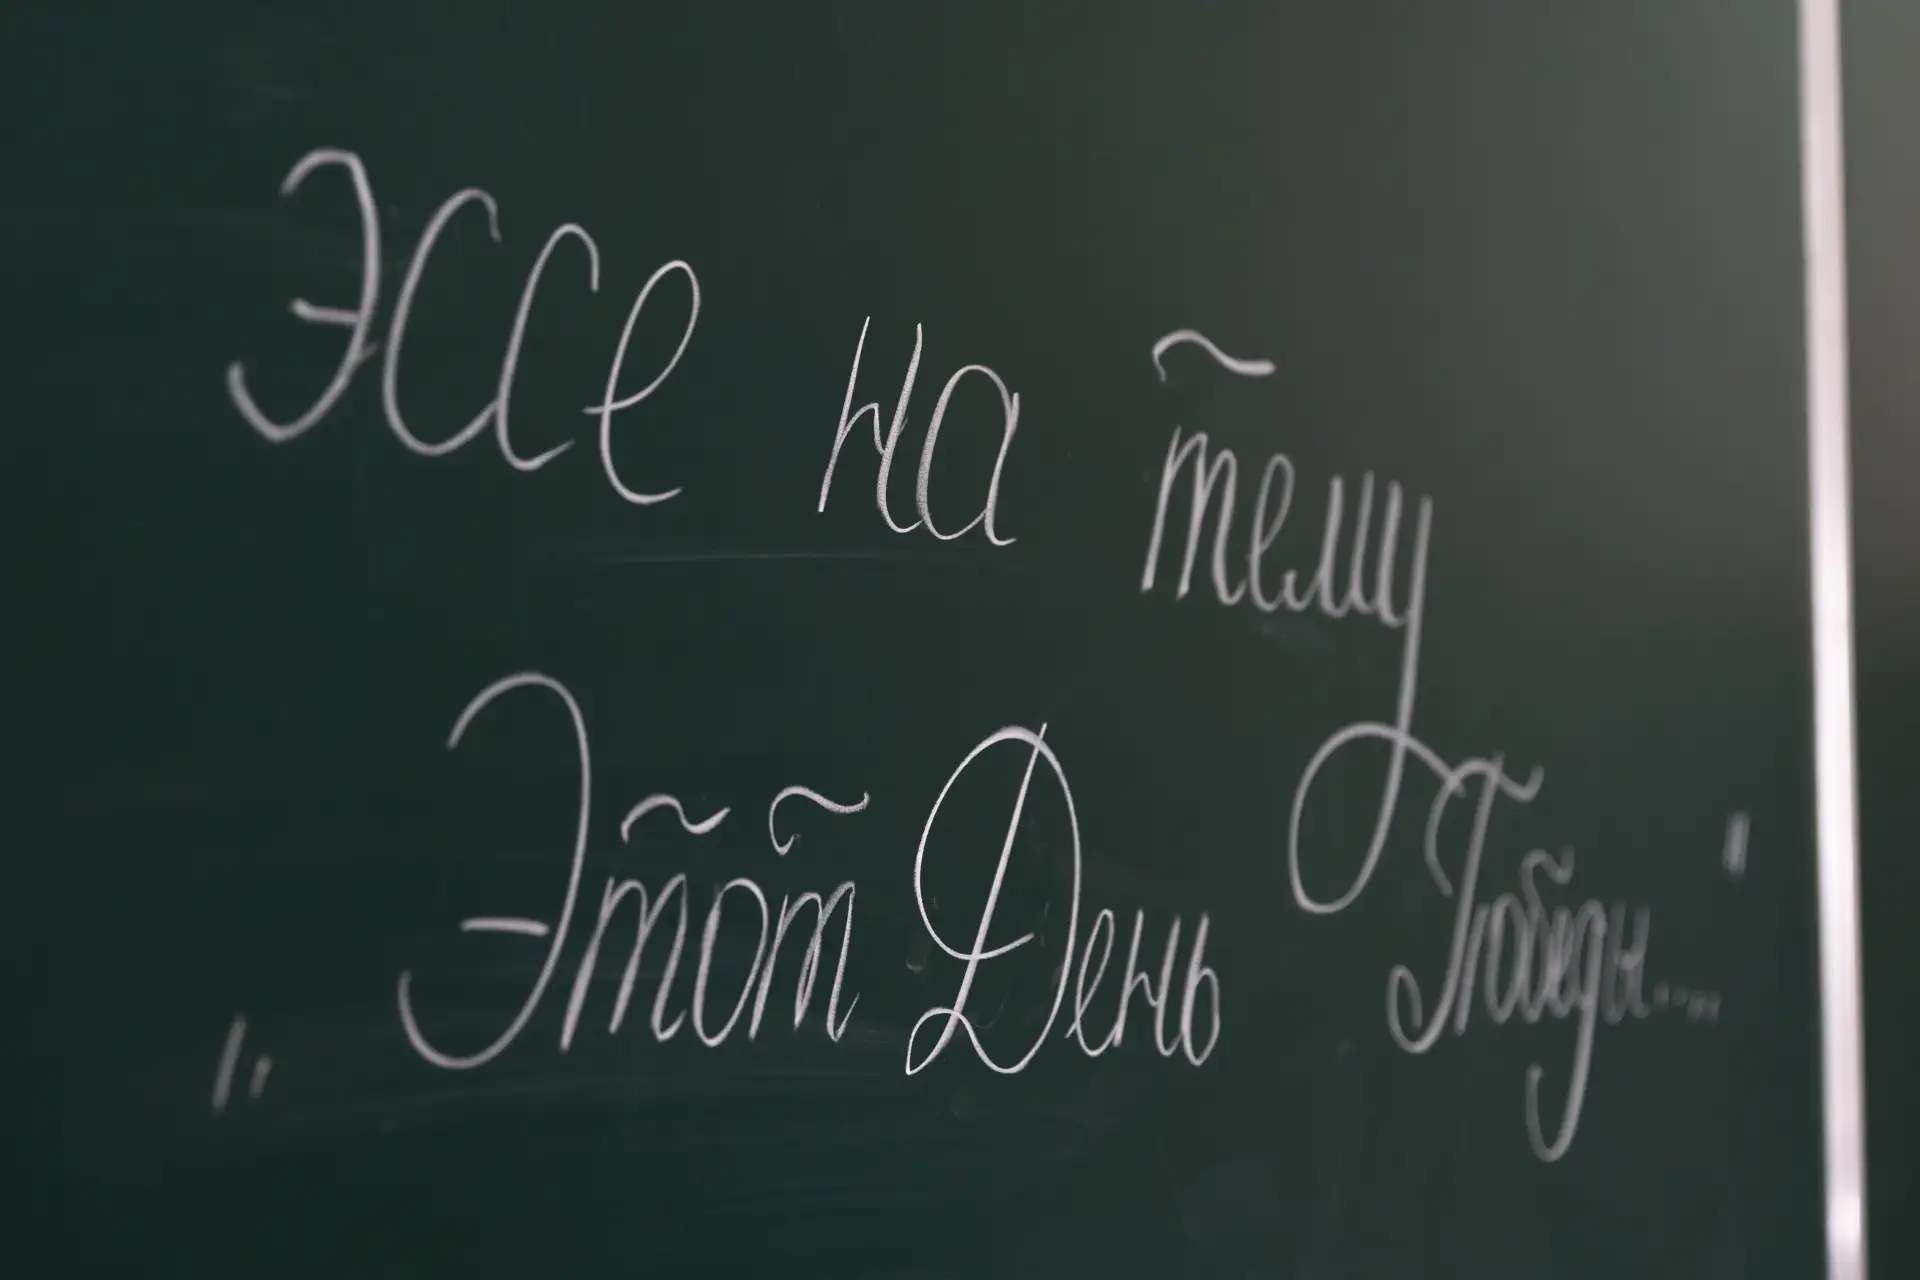 Эссе на тему
„Этот День Победы...."